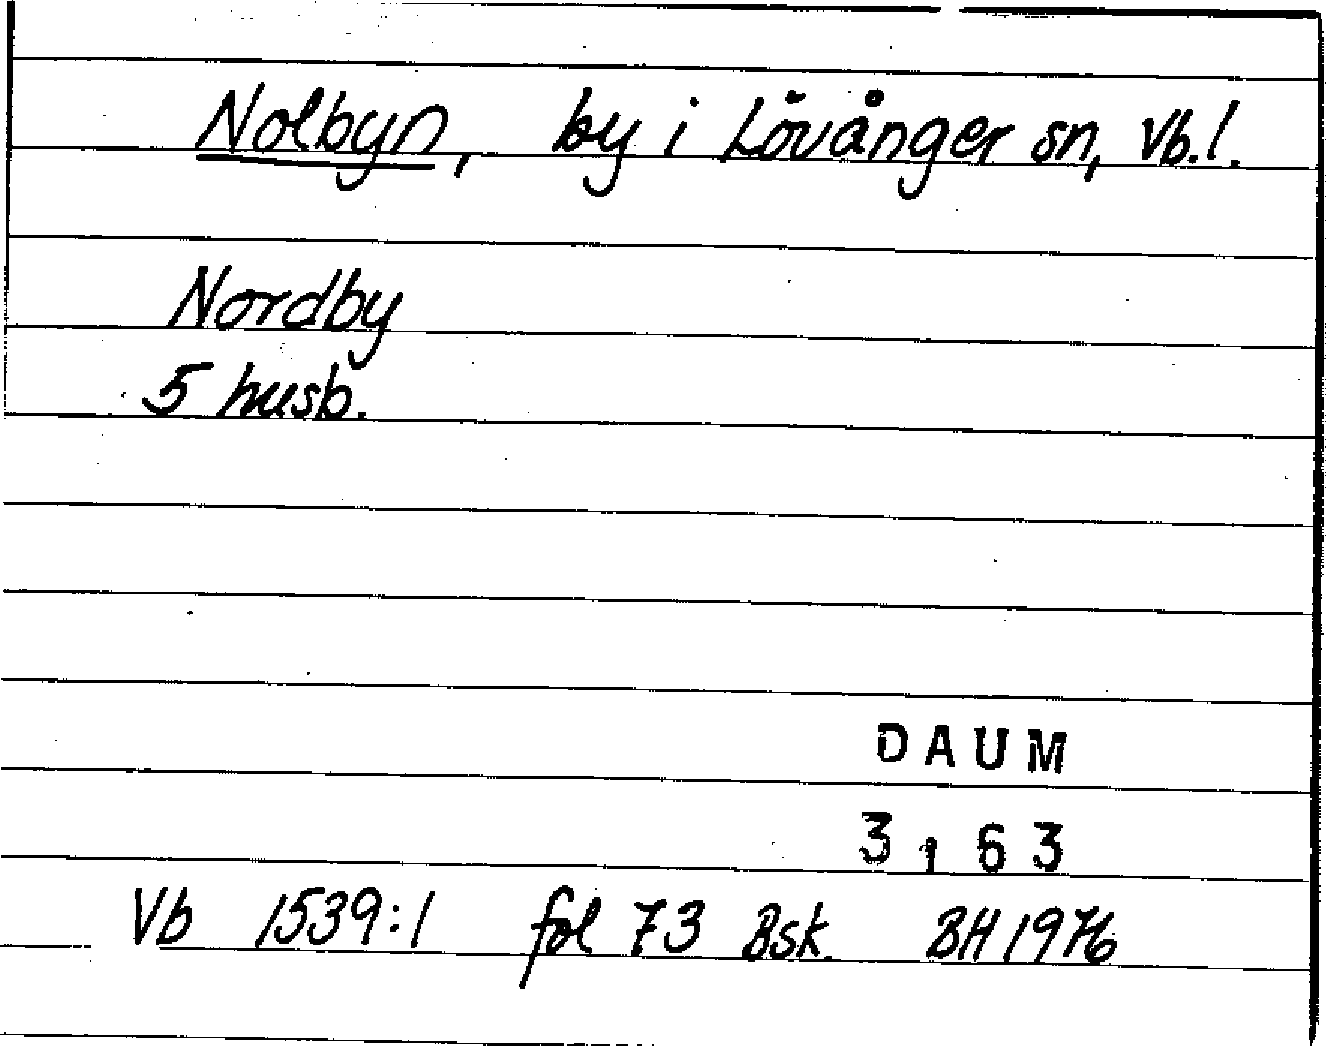 Nolbyn, by i Lövånger sn, Vb.l.
Nordby
5 husb.
DAUM
3163
Vb 1539:1 fol 73 Bsk. BH 1976